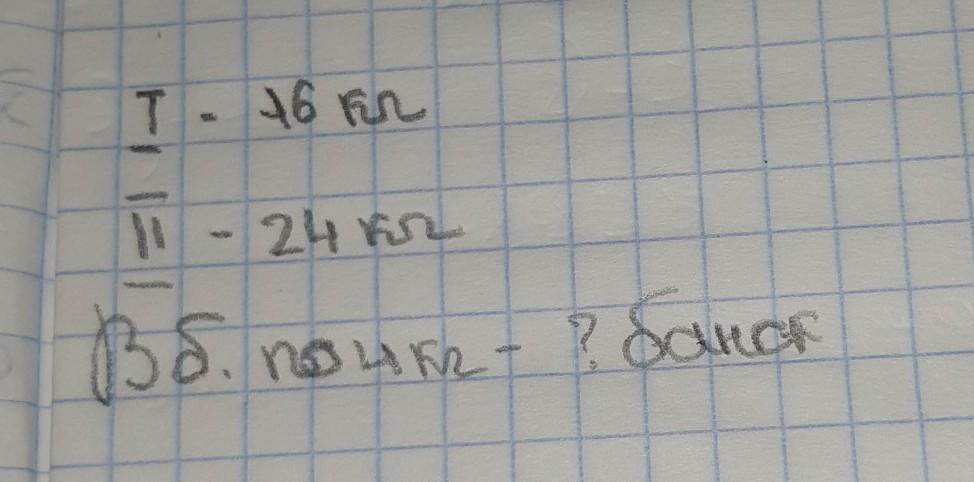 I - 16 кг
II - 24 кг
В б. по 4 кг - ? банок